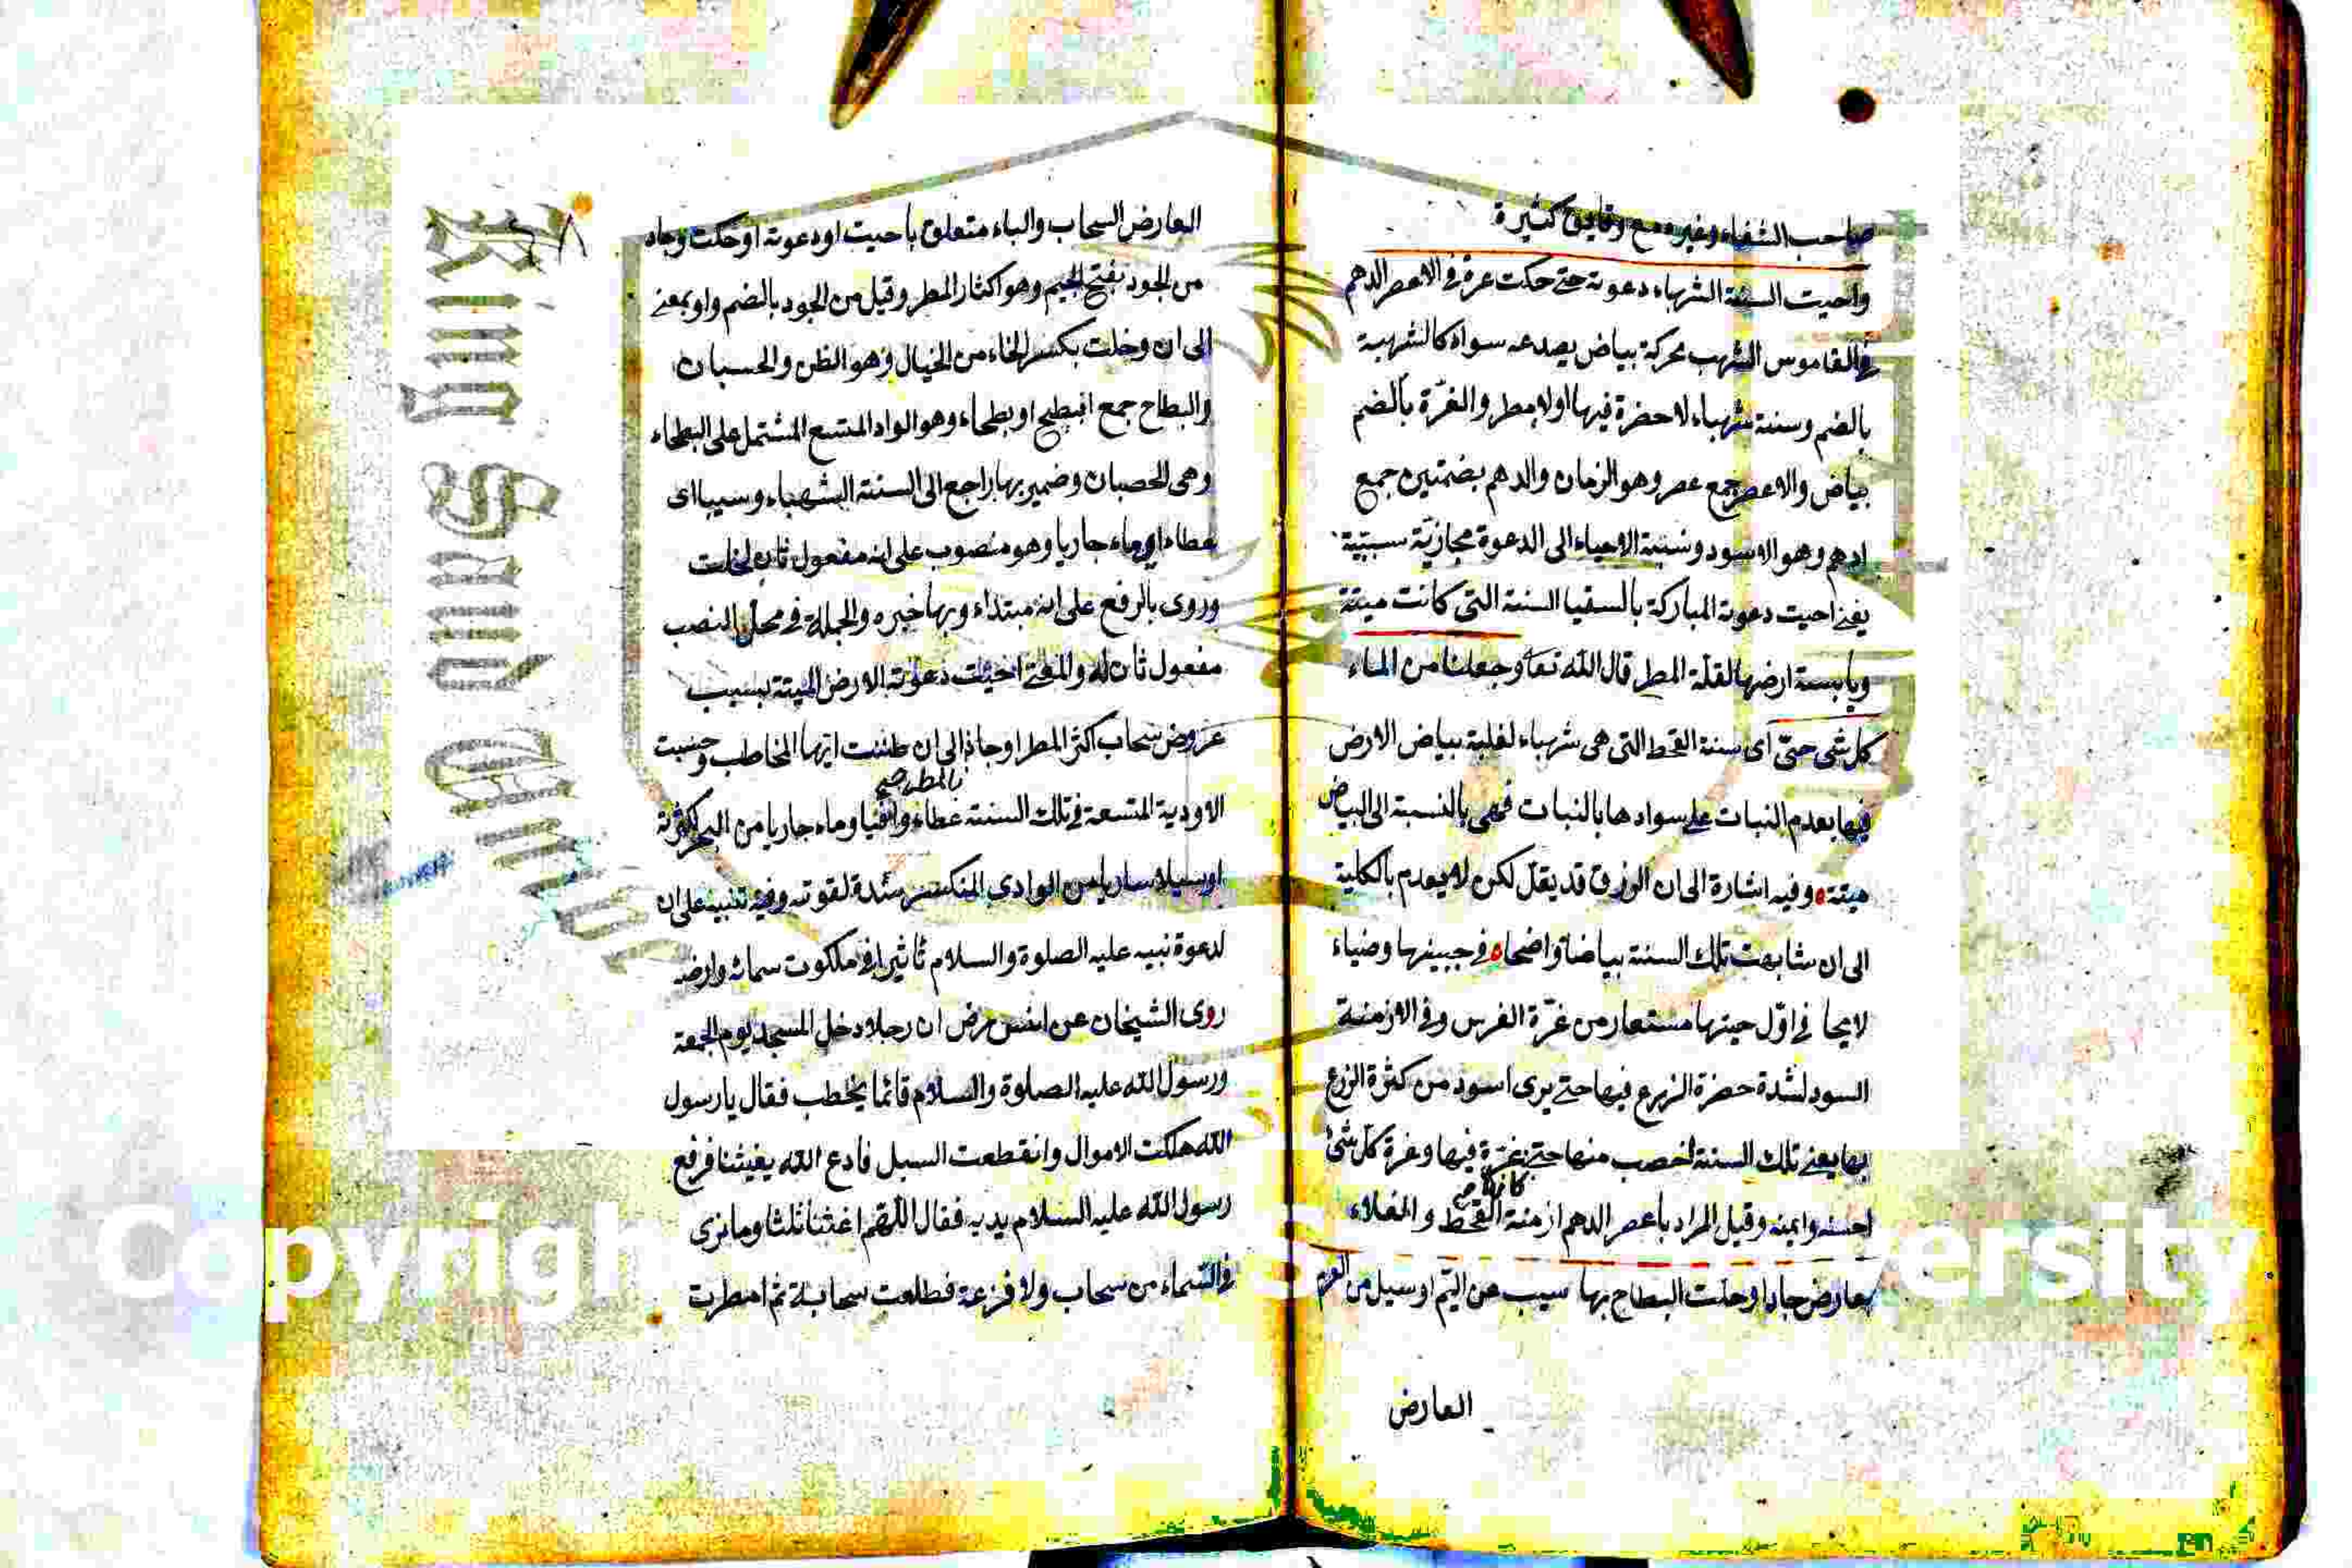 صاحب الشفاء وغيره مع وقايق كثيرة
واحيت السنة الشهباء دعوته حتى حكت غرة في الاعصر الدهم
في القاموس الشهب محركة بياض يصدعه سواد كالشهبة
بالضم وسنة شهباء لا حضرة فيها اولا مطر والغرّة بالضم
بياض والاعصر جمع عصر وهو الزمان والدهم بضمتين جمع
ادهم وهو الاسود ونسبة الاحياء الى الدعوة مجازيّة سببيّة
يعني احيت دعوته المباركة بالسقيا السنة التى كانت ميتة
ويابسة ارضها لقلّة المطر قال الله تعا وجعلنا من الماء
كل شى حىّ اى سنة القحط التى هى شهباء لغلبة بياض الارض
فيها بعدم النبات على سوادها بالنبات فهى بالنسبة الى البياض
ميتة وفيه اشارة الى ان الرزق قد يقلّ لكن لا يعدم بالكلية
الى ان شابهت تلك السنة بياضا واضحا في جبينها وضياء
لايحا في اوّل حينها مستعار من غرّة الفرس وفي الازمنة
السود لشدة حضرة الزرع فيها حتى يرى اسود من كثرة الزرع
بها يعني تلك السنة اخصب منها حتى غرّة فيها وغرة كل شئ
كانها صح
احسنه وايمنه وقيل المراد باعصر الدهم ازمنة القحط والغلاء
بعارض جاد او خلت البطاح بها سيب من اليّم او سيل من العرم
العارض
العارض السحاب والباء متعلق باحيت او دعوته او حكت وجاد
من الجود بفتح الجيم وهو اكثار المطر وقيل من الجود بالضم واو بمعنى
الى ان وخلت بكسر الخاء من الخيال وهو الظن والحسبان
والبطاح جمع ابطح او بطحاء وهو الواد المتسع المشتمل على البطحاء
وهى الحصبان وضمير بها راجع الى السنة الشهباء وسيبا اى
عطاء او ماء جاريا وهو منصوب على انه مفعول ثان لخلت
وروى بالرفع على انه مبتداء وبها خبره والجملة في محل النصب
مفعول ثان له والمعنى احيت دعوته الارض الميتة بسبب
عروض سحاب اكثر المطر او جاد الى ان ظننت ايها المخاطب وحسبت
بالمطر صح
الاودية المتسعة في تلك السنة عطاء وافيا وماء جاريا من البحر لكثرته
او سيلا ساريا من الوادى المنكسر شدة لقوته وفيه تنبيه على ان
لدعوة نبيه عليه الصلوة والسلام تاثيرا في ملكوت سمائه وارضه
روى الشيخان عن انس رض ان رجلا دخل المسجد يوم الجمعة
ورسول الله عليه الصلوة والسلام قائما يخطب فقال يا رسول
الله هلكت الاموال وانقطعت السبل فادع الله يغيثنا فرفع
رسول الله عليه السلام يديه فقال اللهّم اغثنا ثلثا وما نرى
في السّماء من سحاب ولا قزعة فطلعت سحابة ثم امطرت
King Saud
Copyrigh
ersity